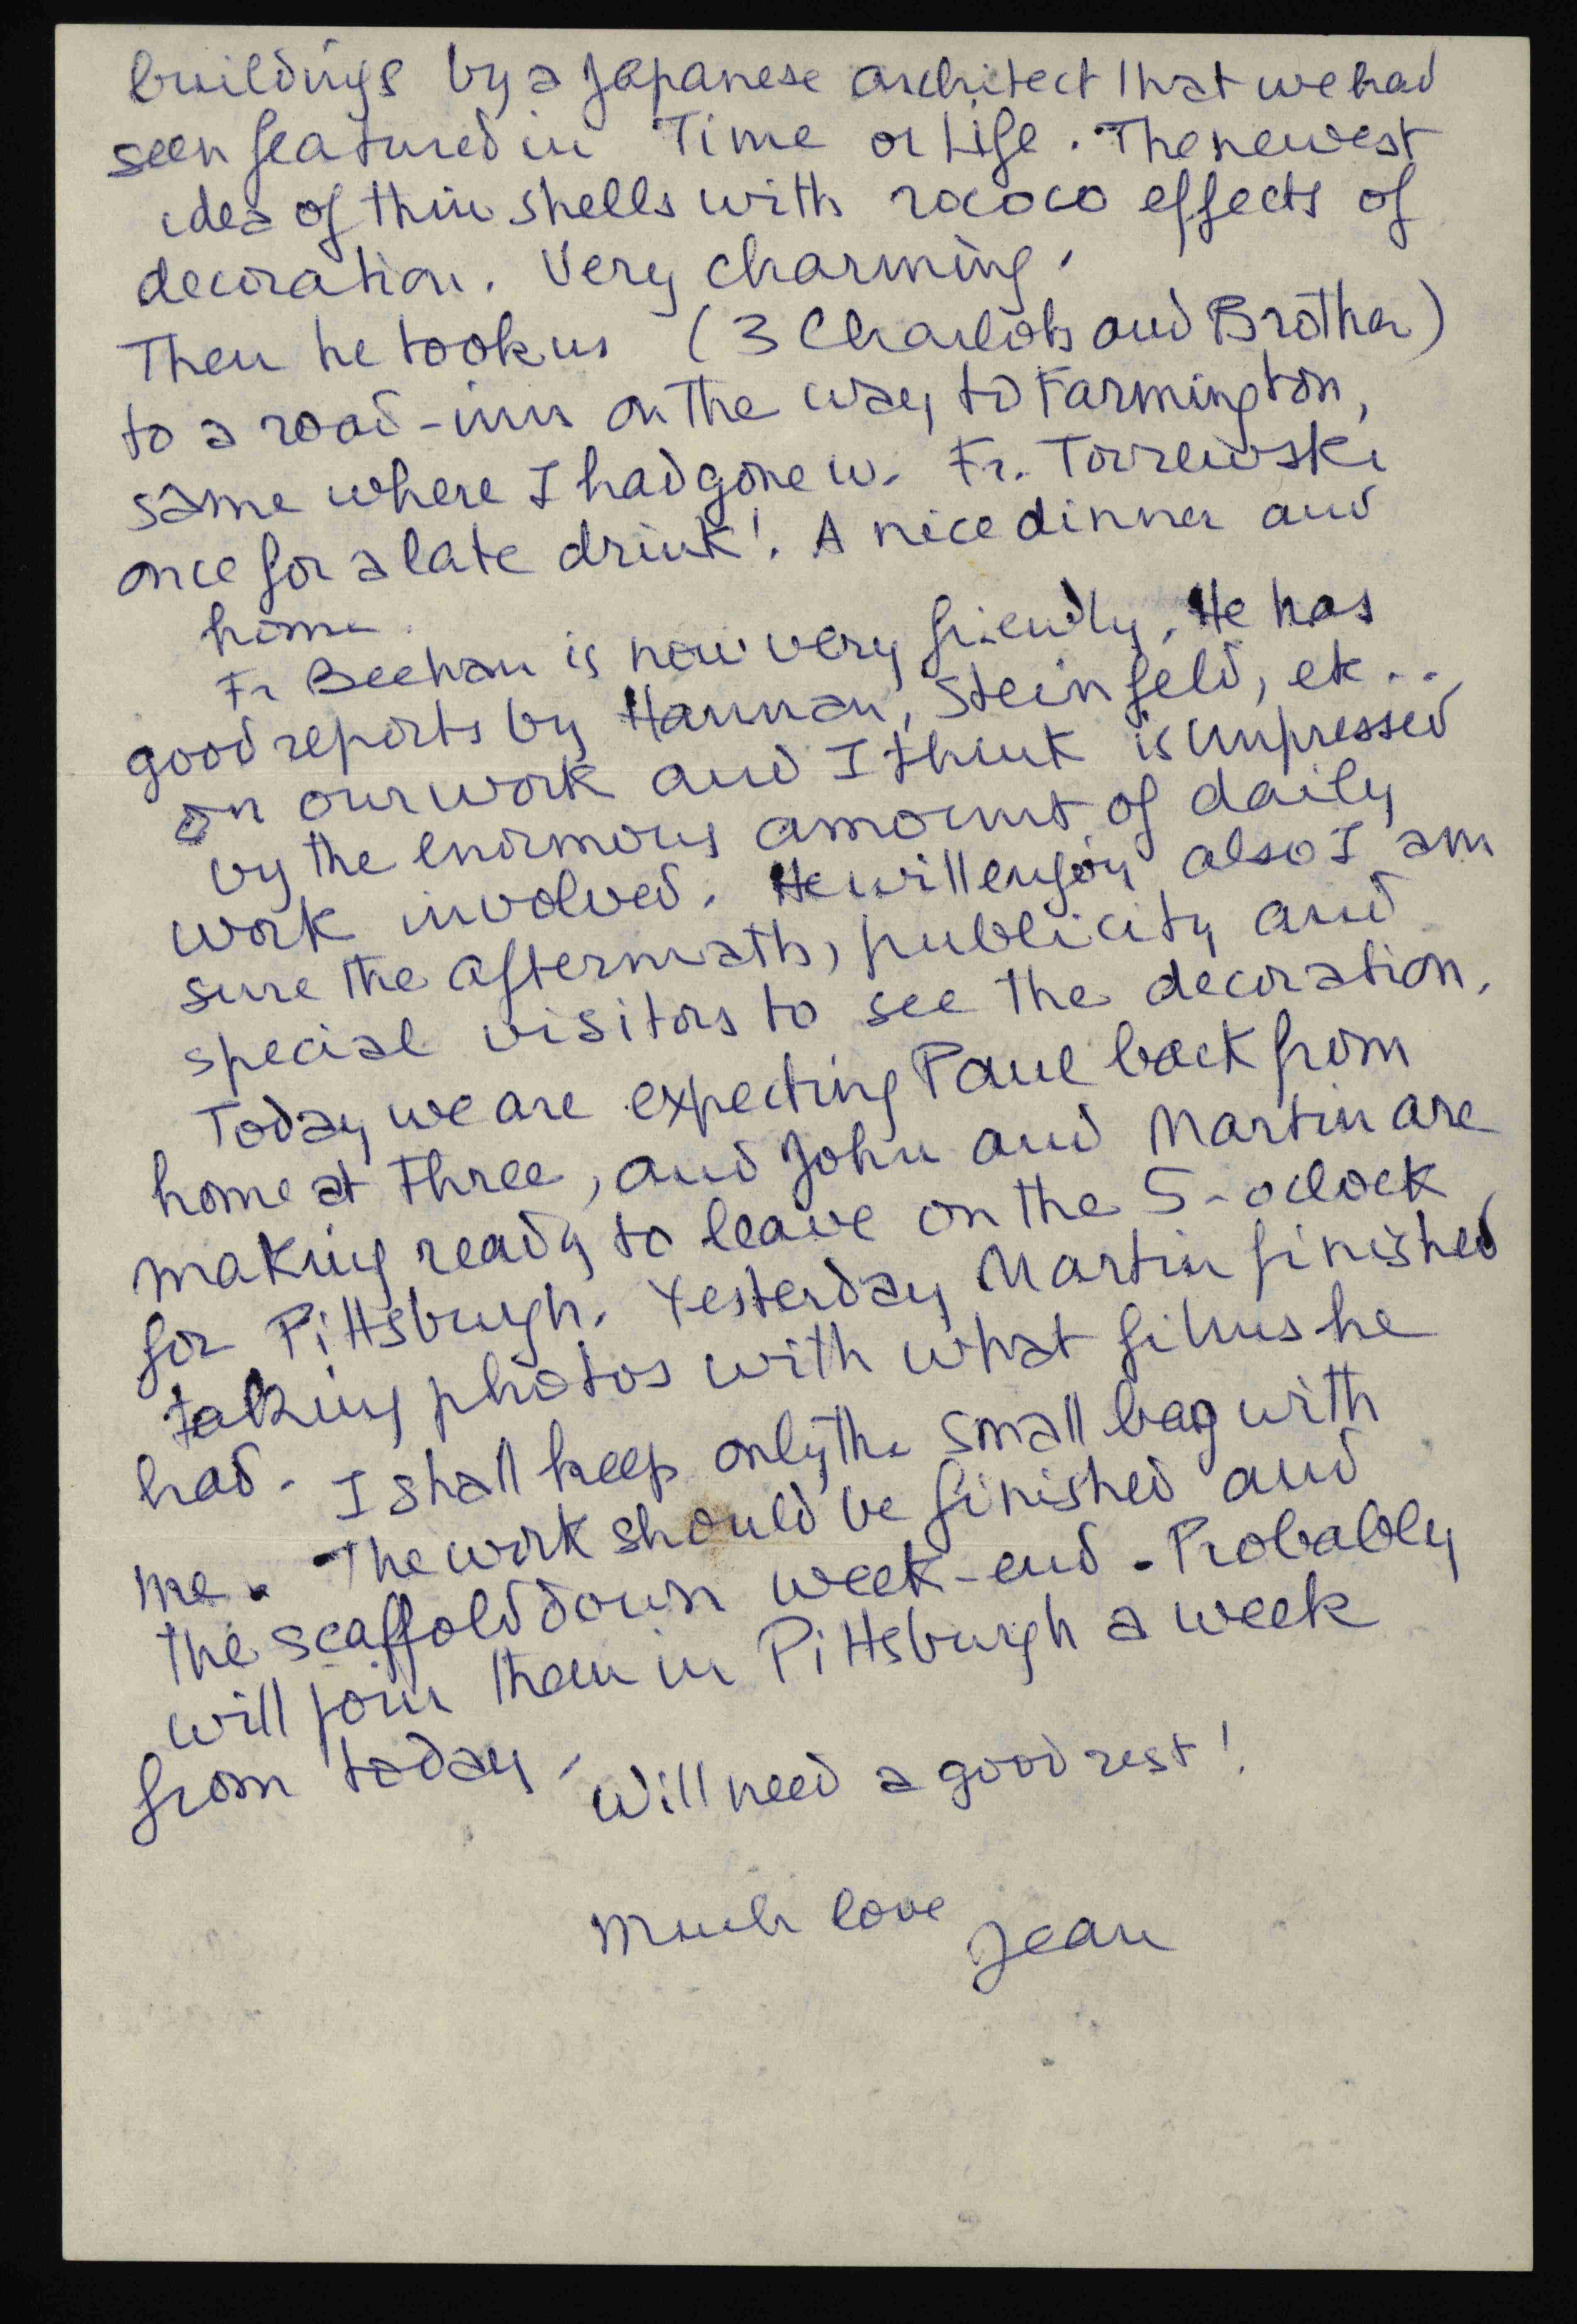 buildings by a Japanese architect that we had
seen featured in Time or Life. The newest
idea of thin shells with rococo effects of
decoration. Very charming.
Then he took us (3 Charlots and Brother)
to a road-inn on the way to Farmington,
same where I had gone w. Fr. Torrewski
once for a late drink!. A nice dinner and
home.
Fr Beehan is now very friendly. He has
good reports by Hannan, Steinfeld, etc..
on our work and I think is impressed
by the enormous amount of daily
work involved. He will enjoy also I am
sure the aftermath, publicity and
special visitors to see the decoration.
Today we are expecting Paul back from
home at three, and John and Martin are
making ready to leave on the 5-oclock
for Pittsburgh. Yesterday Martin finished
taking photos with what films he
had. I shall keep only the small bag with
me. The work should be finished and
the scaffold down week-end. Probably
will join them in Pittsburgh a week
from today. Will need a good rest!
Much love Jean